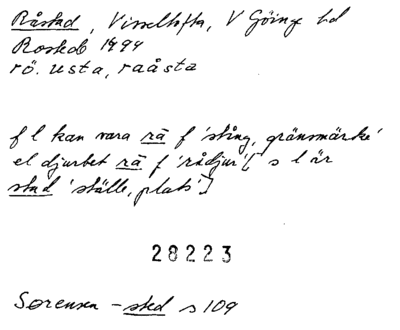 Råstad, Visseltofta, V Göinge hd
Rosteds 1494
rö. usta, raåsta
f l kan vara rå f 'stång, gränsmärke'
el djurbet rå f 'rådjur'[ s l är
stad 'ställe, plats']
28223
Sørensen – sted s 109